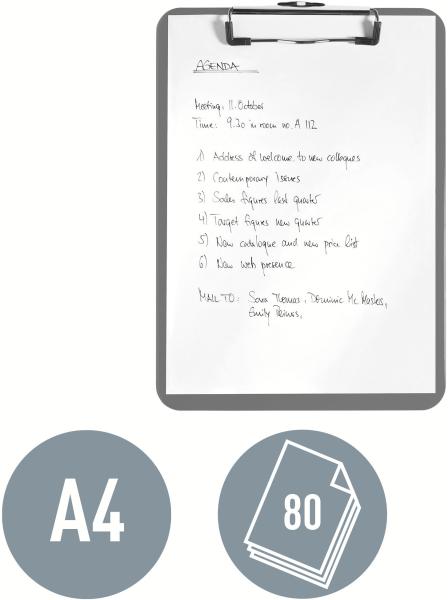 AGENDA
Meeting: 11. October
Time: 9.30 in room no. A 112
1) Address of welcome to new collegues
2) Contemporary Issues
3) Sales figures last quarter
4) Target figures new quarter
5) New catalogue and new price list
6) New web presence
MAIL TO: Sara Thomas, Dominic Mc Masters,
Emily
A4
80